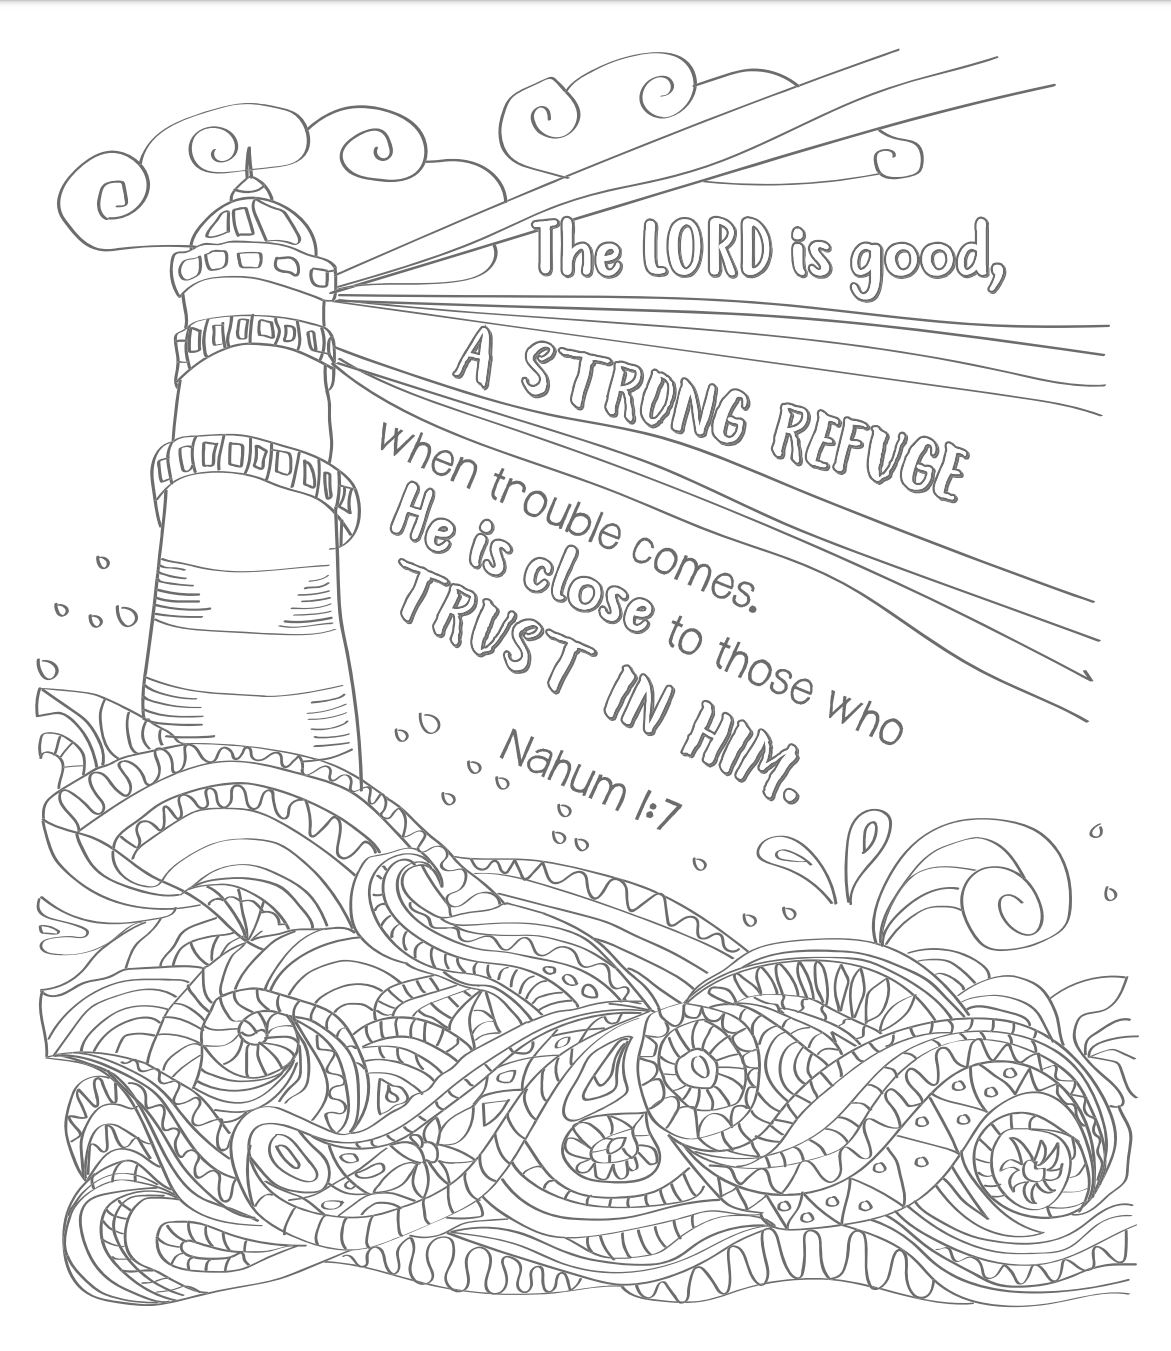 The LORD is good,
A STRONG REFUGE
when trouble comes.
He is close to those who
TRUST IN HIM.
Nahum 1:7